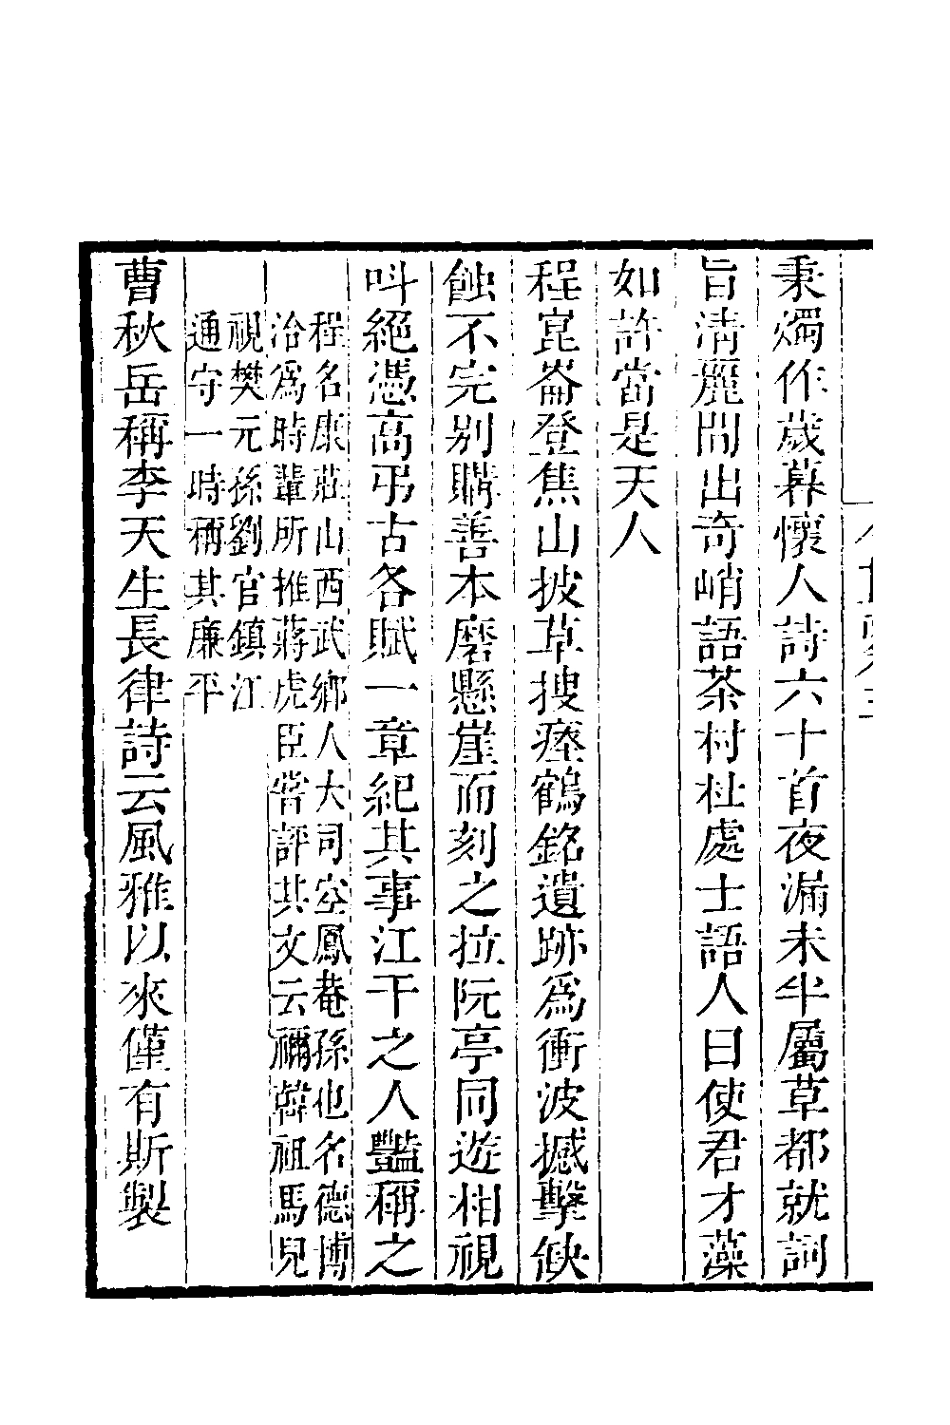 秉燭作歲暮懷人詩六十首夜漏未半屬草都就詞
旨淸麗間出奇峭語茶村杜處士語人曰使君才藻
如許當是天人
程崑崙登焦山披草搜瘞鶴銘遺跡爲衝波撼擊缺
蝕不完別購善本磨懸崖而刻之拉阮亭同遊相視
叫絕憑高弔古各賦一章紀其事江干之人豔稱之
程名康莊山西武鄉人大司空鳳菴孫也名德博
洽爲時輩所推蔣虎臣嘗評其文云禰韓祖馬兒
視樊元孫劉官鎭江
通守一時稱其廉平
曹秋岳稱李天生長律詩云風雅以來僅有斯製